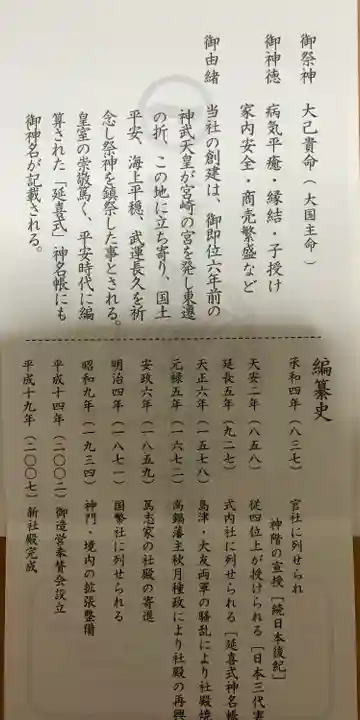 御祭神 大己貴命(大国主命)
御神徳 病気平癒・縁結・子授け
家内安全・商売繁盛など
御由緒 当社の創建は、御即位六年前の
神武天皇が宮崎の宮を発し東遷
の折、この地に立ち寄り、国土
平安、海上平穏、武運長久を祈
念し祭神を鎮祭した事とされる。
皇室の崇敬篤く、平安時代に編
算された「延喜式」神名帳にも
御神名が記載される。
編纂史
承和四年(八三七) 官社に列せられ
神階の宣授[続日本後紀]
天安二年(八五八) 従四位上が授けられる[日本三代実
延長五年(九二七) 式内社に列せられる[延喜式神名帳
天正六年(一五七八) 島津・大友両軍の騒乱により社殿焼
元禄五年(一六九二) 高鍋藩主秋月種政により社殿の再興
安政六年(一八五九) 篤志家の社殿の寄進
明治四年(一八七一) 国幣社に列せられる
昭和九年(一九三四) 神門・境内の拡張整備
平成十四年(二〇〇二) 御造営奉賛会設立
平成十九年(二〇〇七) 新社殿完成